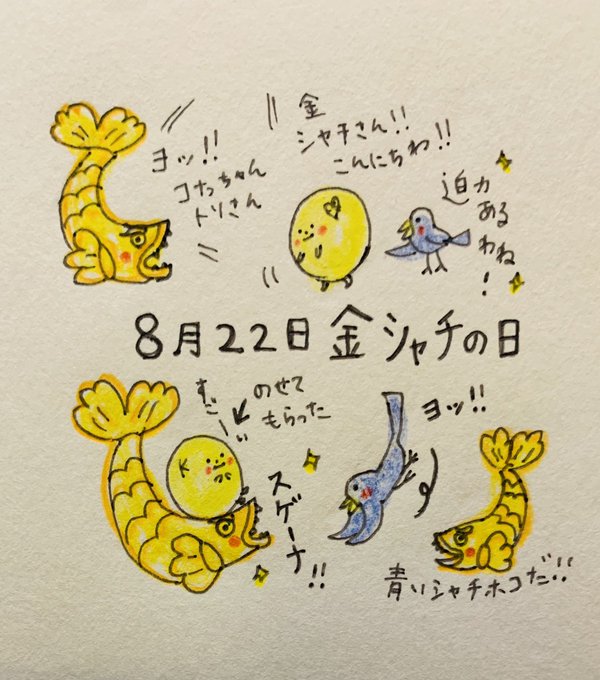 ヨッ!!
コナっちゃん
トリさん
金
シャチさん!!
こんにちわ!!
迫力
あるわね!
8月22日 金シャチの日
すごーい
のせて
もらった
K
スゲーナ!!
ヨッ!!
青いシャチホコだ!!